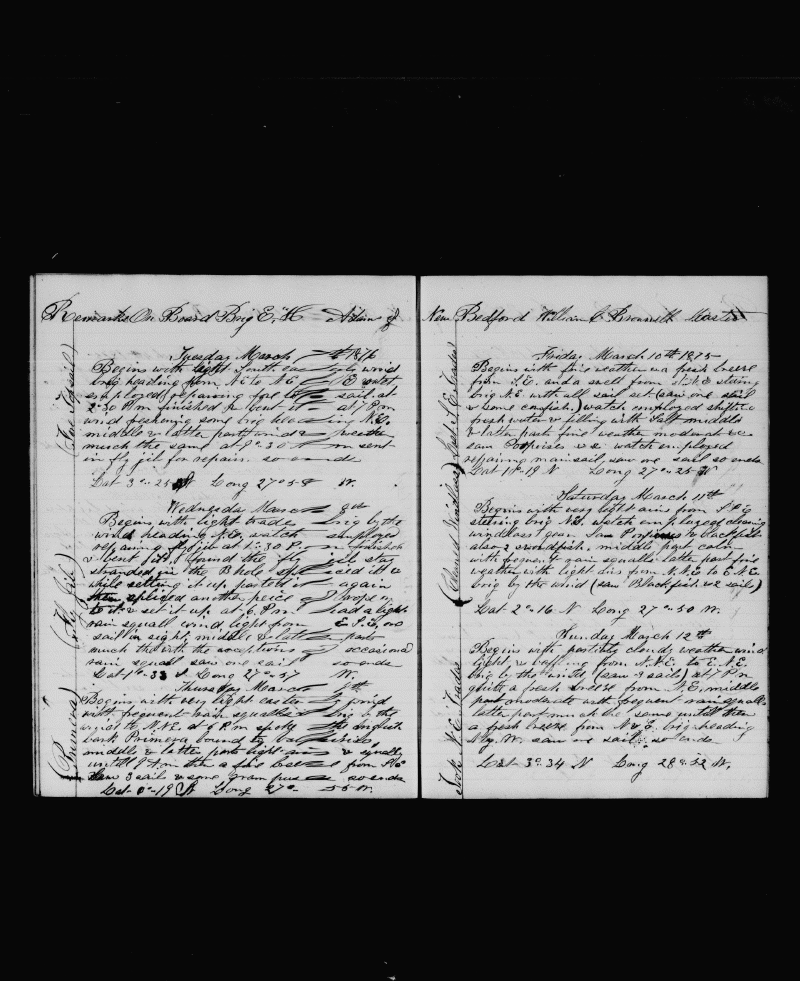 Remarks On Board Brig E. H. Adams of
(For Topsail)
Tuesday March 7th 1876
Begins with light South east wind
brig heading from
employed repairing sail at
2-30 P.m finished & bent it at 7 P.m
wind freshening some brig N.E.
middle & latter part wind & weather
much the same at P.m sent
in fly jib for repairs. so ends
Lat 3°-25 Long 27°-58 W.
(Fly Jib)
Wednesday March 8th
Begins with light trade brig by the
wind heading N.E. watch employed
repairing fly jib at 1-30 P.m finished
& bent it, found the fly jib stay
stranded in the B hole spliced it &
while setting it up parted it again
then spliced another piece of
to it & set it up, at 6. P.m had a light
rain squall wind light from E.S.E, no
sail in sight, middle & latter parts
much the with the exceptions of occasional
rain squall saw one sail so ends
Lat 1°-33 Long 27°-57 W.
(Primera)
Thursday March 9th
Begins with very light easter wind
with frequent rain squalls brig by the
wind to N.N.E. at 6 P.m spoke the english
bark Primera bound to
middle & latter parts light airs & squally
untill then a fine breeze from
saw 3 sails & some so ends
Lat 0°-19 Long 27°- 55 W.
New Bedford William C. Master
(Lost S.E. Trades)
Friday March 10th 1875
Begins with fine weather wa fresh breeze
from S.E. and a swell from stering
brig N.E with all sail set (saw one sail
& some cowfish) watch employed shifting
fresh water & filling with Salt. middle
& latter parts fine weather moderate
saw Porpoises watch employed
repairing mainsail, saw one sail so ends
Lat 1°-19 N Long 27°-25 W
(Cleaned Windlass)
Saturday March 11th
Begins with very light airs from
stering brig N.E. watch employed cleaning
windlass gear. Saw Porpoises & blackfish
also 2 swordfish, middle part calm
with frequent rain squalls latter part fine
weather with light airs from N.N.E to E.N.E
brig by the wind (saw Blackfish & 2 sails)
Lat 2°-16 N Long 27°-50 W.
Took N.E. Trades
Sunday March 12th
Begins with partially cloudy weather wind
light & baffling from N.N.E. to E.N.E.
brig by the wind (saw 3 sails) at 7 P.m
quite a fresh breeze from N.E, middle
part moderate with frequent rain squalls
latter part much the same untill then
a fresh breeze from N.E. brig heading
N by W. saw one sail so ends
Lat 3°-34 N Long 28°-52 W.